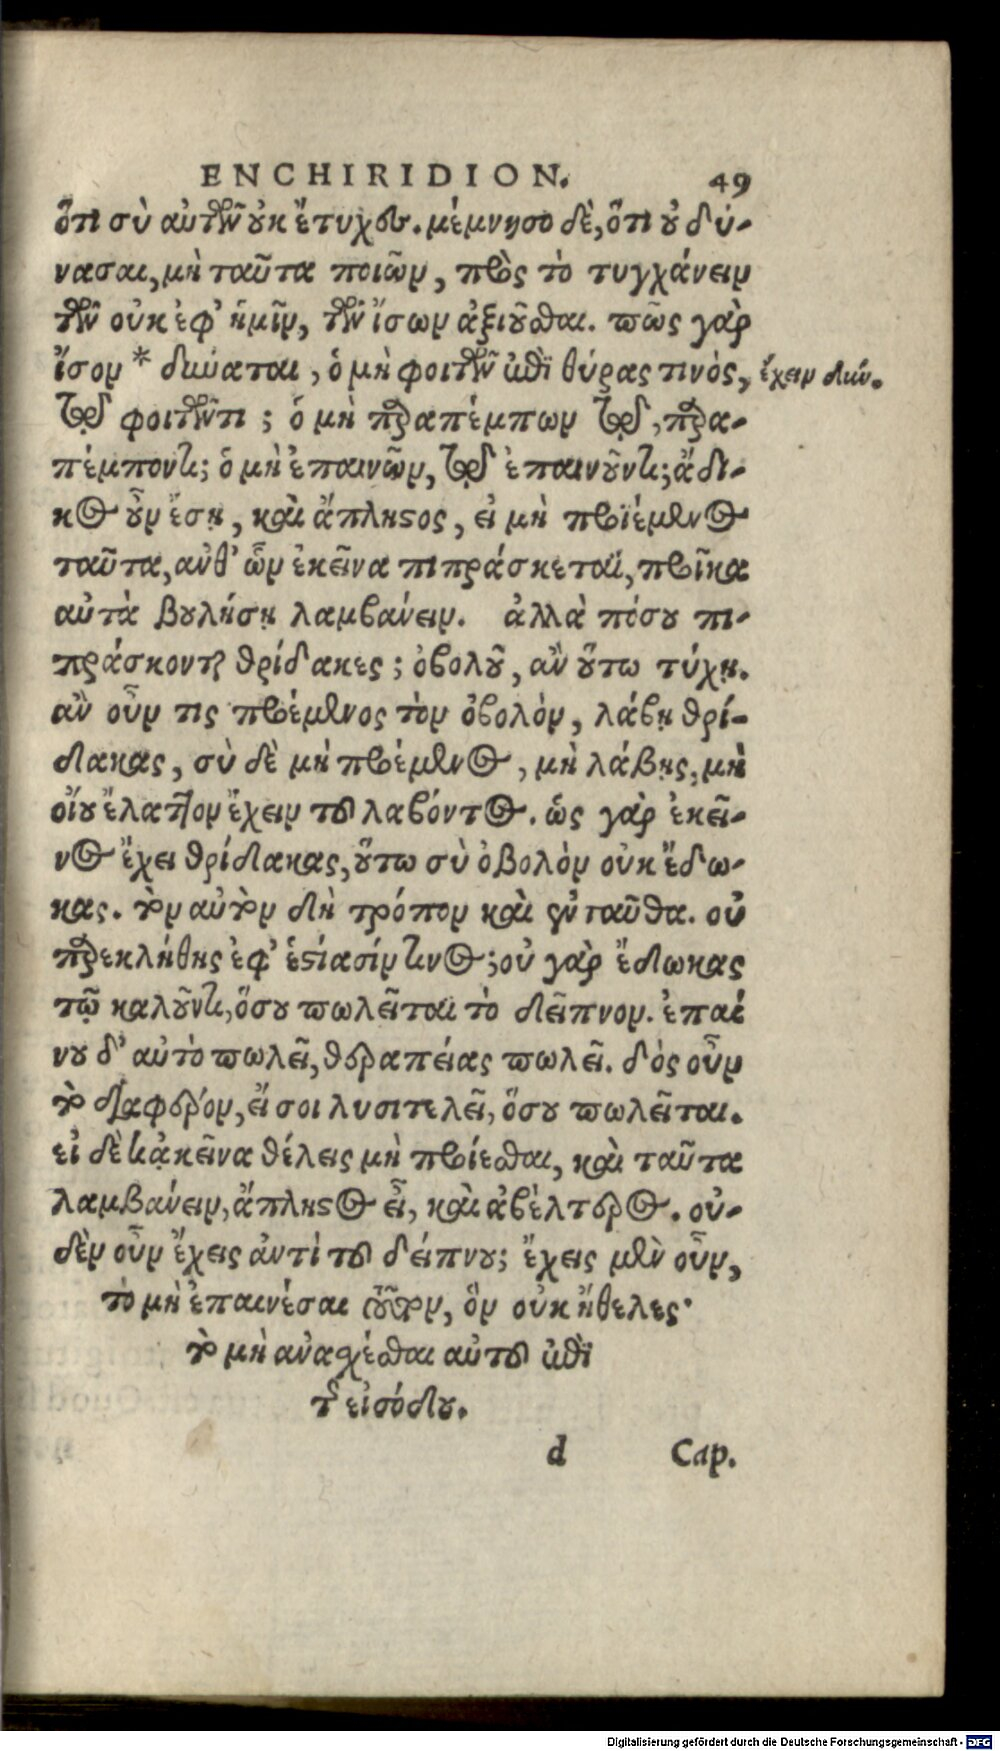 ENCHIRIDION. 49
ὅτι σὺ αὐτῶν οὐκ ἔτυχες. μέμνησο δὲ, ὅτι οὐ δύ-
νασαι, μὴ ταῦτα ποιῶν, πρὸς τὸ τυγχάνειν
τῶν οὐκ ἐφ' ἡμῖν, τῶν ἴσων ἀξιοῦσθαι. πῶς γὰρ
ἴσον * δύναται, ὁ μὴ φοιτῶν ἐπὶ θύρας τινὸς, ἔχειν δύν.
τῷ φοιτῶντι; ὁ μὴ παραπέμπων τῷ, παρα-
πέμποντι; ὁ μὴ ἐπαινῶν, τῷ ἐπαινοῦντι; ἄδι-
κος οὖν ἔσῃ, καὶ ἄπληστος, εἰ μὴ προϊέμενος
ταῦτα, ἀνθ' ὧν ἐκεῖνα πιπράσκεται, προῖκα
αὐτὰ βουλήσῃ λαμβάνειν. ἀλλὰ πόσου πι-
πράσκονται θρίδακες; ὀβολοῦ, ἂν οὕτω τύχῃ.
ἂν οὖν τις προέμενος τὸν ὀβολὸν, λάβῃ θρί-
δακας, σὺ δὲ μὴ προέμενος, μὴ λάβῃς, μὴ
οἴου ἔλαττον ἔχειν τοῦ λαβόντος. ὡς γὰρ ἐκεῖ-
νος ἔχει θρίδακας, οὕτω σὺ ὀβολὸν οὐκ ἔδω-
κας. τὸν αὐτὸν δὴ τρόπον καὶ ἐνταῦθα. οὐ
παρεκλήθης ἐφ' ἑστίασίν τινος; οὐ γὰρ ἔδωκας
τῷ καλοῦντι, ὅσου πωλεῖται τὸ δεῖπνον. ἐπαί
νου δ' αὐτὸ πωλεῖ, θεραπείας πωλεῖ. δὸς οὖν
τὸ διάφερον, εἴ σοι λυσιτελεῖ, ὅσου πωλεῖται.
εἰ δὲ κἀκεῖνα θέλεις μὴ προίεσθαι, καὶ ταῦτα
λαμβάνειν, ἄπληστος εἶ, καὶ ἀβέλτερος. οὐ-
δὲν οὖν ἔχεις ἀντὶ τοῦ δείπνου; ἔχεις μὲν οὖν,
τὸ μὴ ἐπαινέσαι τοῦτον, ὃν οὐκ ἤθελες·
τὸ μὴ ἀνασχέσθαι αὐτοῦ ἐπὶ
τῆς εἰσόδου.
d Cap.
Digitalisierung gefördert durch die Deutsche Forschungsgemeinschaft - DFG